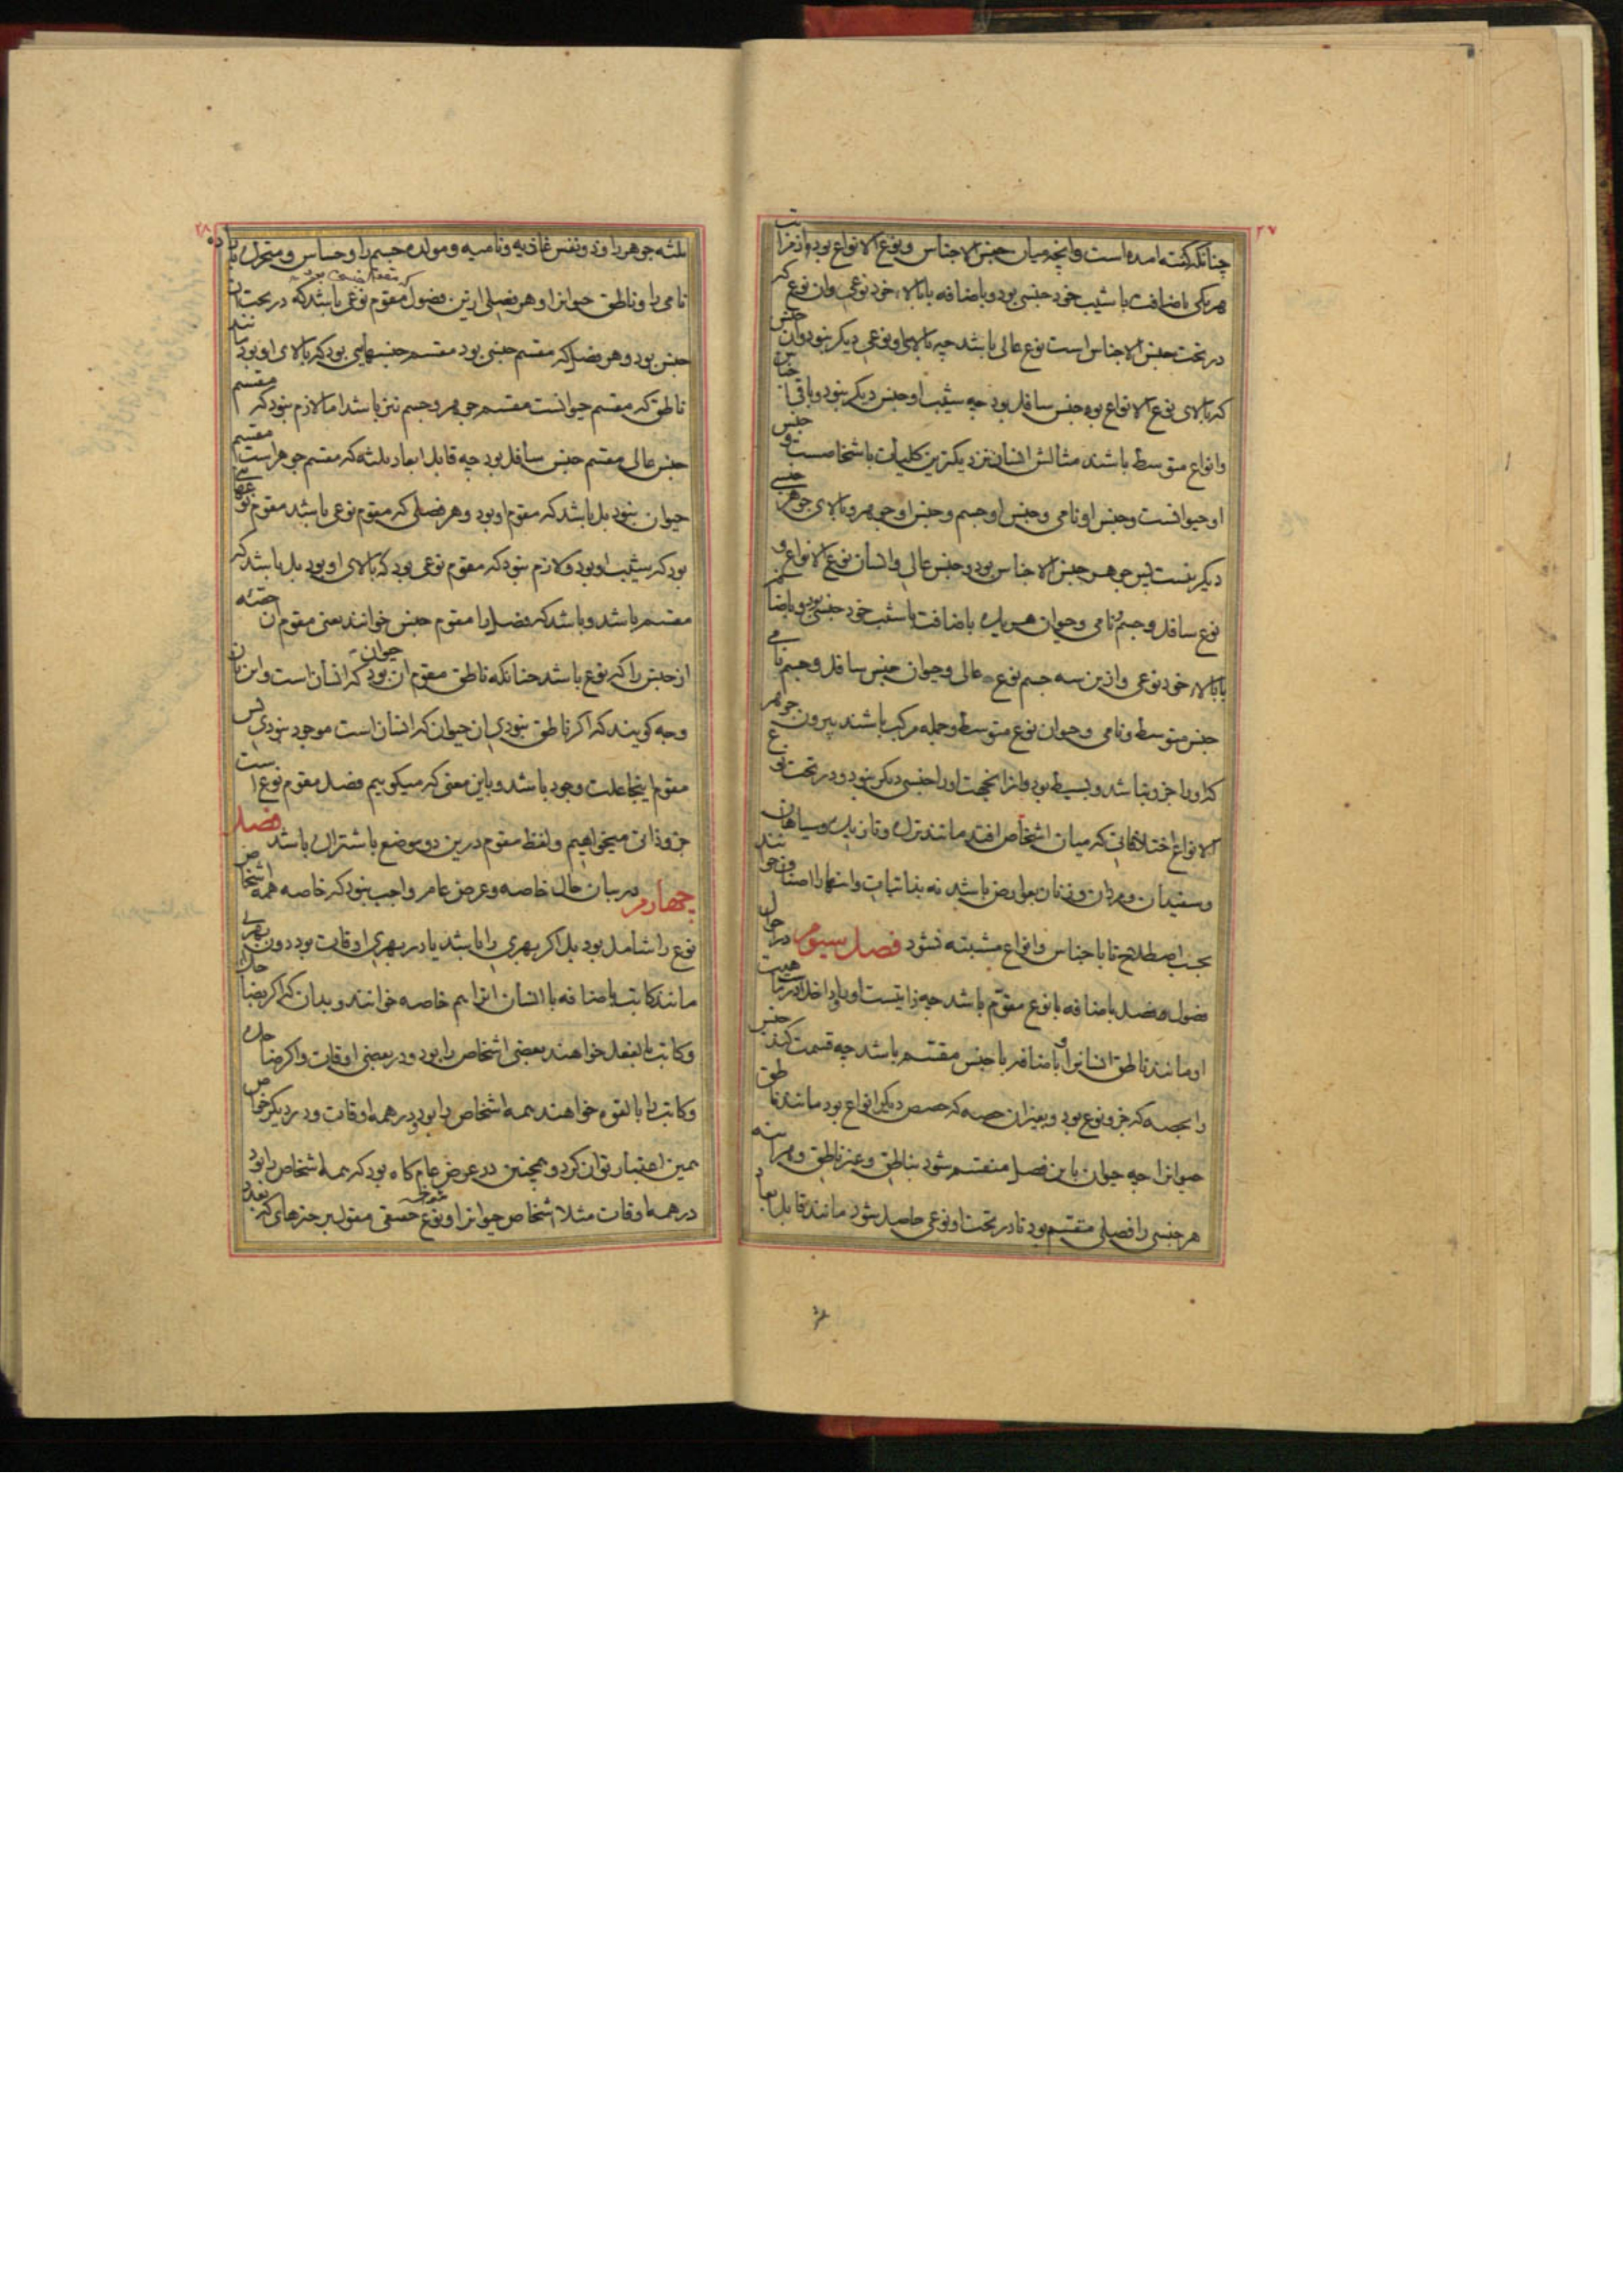 ۲۷
چنانکه گفته امده است وانچه میان جنس الاجناس ونوع الانواع بود از مراتب
هر یکی باضافت باشیب خود جنسی بود وباضافه بابالاء خود نوعی وان نوع که
در تحت جنس الاجناس است نوع عالی باشد چه بالای او نوعی دیگر نبود وان جنس
که بالای نوع الانواع بود جنس سافل بود چه شیب او جنس دیگر نبود وباقی اجناس
وانواع متوسط باشند مثالش انسان نزدیکترین کلیات باشخاصست و جنس
او حیوانست وجنس او نامی وجنس او جسم وجنس او جوهر وبالای جوهر جنسی
دیگر نیست پس جوهر جنس الاجناس بود وجنس عالی وانسان نوع الانواع و
نوع سافل وجسم ونامی وحیوان هر یک باضافت باشیب خود جنسی بود وباضافه
بابالاء خود نوعی وازین سه جسم نوع عالی وحیوان جنس سافل وجسم نامی
جنس متوسط ونامی وحیوان نوع متوسط وجمله مرکب باشند بیرون جوهر
که او را جزو نباشد وبسیط بود وازانجهت او را جنسی دیگر نبود ودر تحت نوع
الانواع اختلافاتی که میان اشخاص افتد مانند ترک وتازیک وسیاهان
وسفیدان ومردان وزنان بعوارض باشد نه بذاتیات وانها را اصناف خوانند
بحسب اصطلاح تا با جناس وانواع مشتبه نشود فصل سیوم در احوال
فصول فصل باضافه با نوع مقوم باشد چه ذاتیست او را وداخل در ماهیت
او مانند ناطق انسانرا وباضافه با جنس مقسم باشد چه قسمت کند جنس
را بحصه که جزو نوع بود وبغیر ان حصه که حصص دیگر انواع بود مانند ناطق
حیوانرا چه حیوان باین فصل منقسم شود بناطق وغیر ناطق وهراینه
هر جنسی را فصلی مقسم بود تا در تحت او نوعی حاصل شود مانند قابل ابعاد
۲۸
ثلثه جوهر را وذو نفس غاذیه ونامیه ومولده جسم را وحساس ومتحرک باراده
نامی را وناطق حیوانرا وهر فصلی ازین فصول مقوم نوعی باشد که در تحت ان
جنس بود وهر فصل که مقسم جنسی بود مقسم جنسهایی بود که بالای او بود مانند
ناطق که مقسم حیوانست مقسم جوهر وجسم نیز باشد اما لازم نبود که مقسم
جنس عالی مقسم جنس سافل بود چه قابل ابعاد ثلثه که مقسم جوهر است مقسم
حیوان نبود بل باشد که مقوم او بود وهر فصلی که مقوم نوعی باشد مقوم نوعهایی
بود که بشیب او بود ولازم نبود که مقوم نوعی بود که بالای او بود بل باشد که
مقسم باشد وباشد که فصل را مقوم جنس خوانند یعنی مقوم ان حصه
از جنس را که نوع باشد چنانکه ناطق مقوم ان حیوان بود که انسان است واین بان
وجه گویند که اگر ناطق نبودی ان حیوان که انسان است موجود نبودی پس
مقوم اینجا علت وجود باشد وباین معنی که میگوییم فصل مقوم نوع است
جزو ذاتی میخواهیم ولفظ مقوم درین دو موضع باشتراک باشد فصل
چهارم در بیان حال خاصه وعرض عام واجب نبود که خاصه همه اشخاص
نوع را شامل بود بل اگر بهری را باشد یا در بهری اوقات بود دون بهری
مانند کاتب باضافه با انسان انرا هم خاصه خوانند وبدان که اگر بضاحک
وکاتب بالفعل خواهند بعضی اشخاص را بود ودر بعضی اوقات واگر ضاحک
وکاتب را بالقوه خواهند همه اشخاص را بود ودر همه اوقات ودر دیگر خواص
همین اعتبار توان کرد وهمچنین در عرض عام گاه بود که همه اشخاص را بود
در همه اوقات مثلا اشخاص حیوانرا ونوع حقیقی مقول بر چیزهای که بعدد